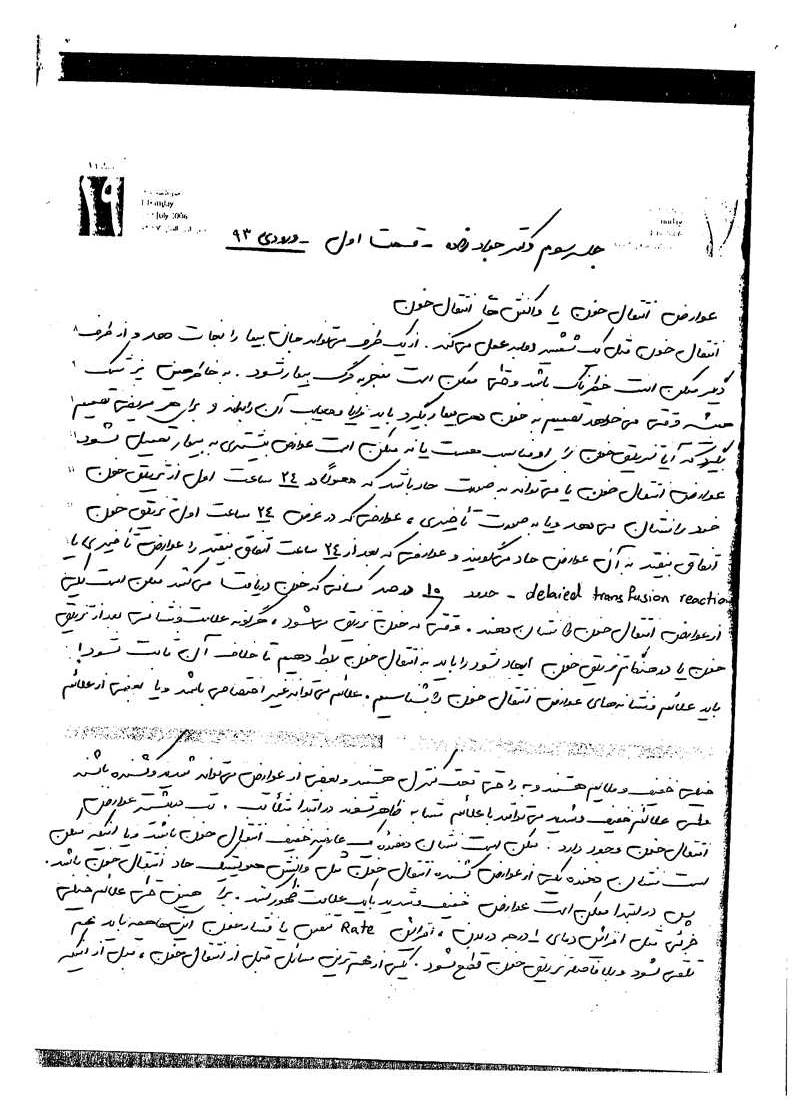 ۱۹
July 2006
جلسه سوم دکتر جوادزاده - قسمت اول - ورودی ۹۳
عوارض انتقال خون یا واکنش های انتقال خون
انتقال خون مثل یک شمشیر دولبه عمل می‌کند. از یک طرف می‌تواند جان بیمار را نجات دهد و از طرف
دیگر ممکن است خطرناک باشد و حتی ممکن است منجر به مرگ بیمار شود. به خاطر همین پزشک
همیشه وقتی می‌خواهد تصمیم به خون دهی بیمار بگیرد باید مزایا و معایب آن را بداند و برای هر مریض تصمیم
بگیرد که آیا تزریق خون برای او مناسب هست یا نه ممکن است عوارض بیشتری به بیمار تحمیل شود!
عوارض انتقال خون یا می‌تواند به صورت حاد باشد که معمولاً در ۲۴ ساعت اول از تزریق خون
خود را نشان می‌دهد و یا به صورت تأخیری، عوارضی که در عرض ۲۴ ساعت اول تزریق خون
اتفاق بیفتد به آن عوارض حاد می‌گویند و عوارضی که بعد از ۲۴ ساعت اتفاق بیفتد را عوارض تأخیری یا
delaied transfusion reaction - حدود ۱۰ درصد کسانی که خون دریافت می‌کنند ممکن است یکی
از عوارض انتقال خون را نشان دهند. وقتی که خون تزریق می‌شود، هرگونه علامت و نشانه‌ی بعد از تزریق
خون یا در هنگام تزریق خون ایجاد شود را باید به انتقال خون ربط دهیم تا خلاف آن ثابت شود!
باید علائم و نشانه‌های عوارض انتقال خون را بشناسیم. علائم می‌تواند غیر اختصاصی باشد و یا بعضی از علائم
خیلی خفیف و ملایم هستند و به راحتی تحت کنترل هستند و بعضی از عوارض می‌تواند شدید و کشنده باشند
ولی علائم خفیف و شدید می‌توانند با علائم مشابه ظاهر شوند در ابتدا تب در بیشتر عوارض
انتقال خون وجود دارد. ممکن است نشان دهنده یک عارضه خفیف انتقال خون باشد و یا اینکه ممکن
است نشان دهنده یکی از عوارض کشنده انتقال خون مثل واکنش همولیتیک حاد انتقال خون باشد.
پس در ابتدا ممکن است عوارض خفیف و شدید با یک علامت ظهور کنند. برای همین حتی علائم خیلی
جزئی مثل افزایش دمای ۱ درجه در بدن، افزایش Rate تنفس یا فشار خون این‌ها همه باید مهم
تلقی شود و بلافاصله تزریق خون قطع شود. یکی از مهم ترین مسائل قبل از انتقال خون، قبل از اینکه